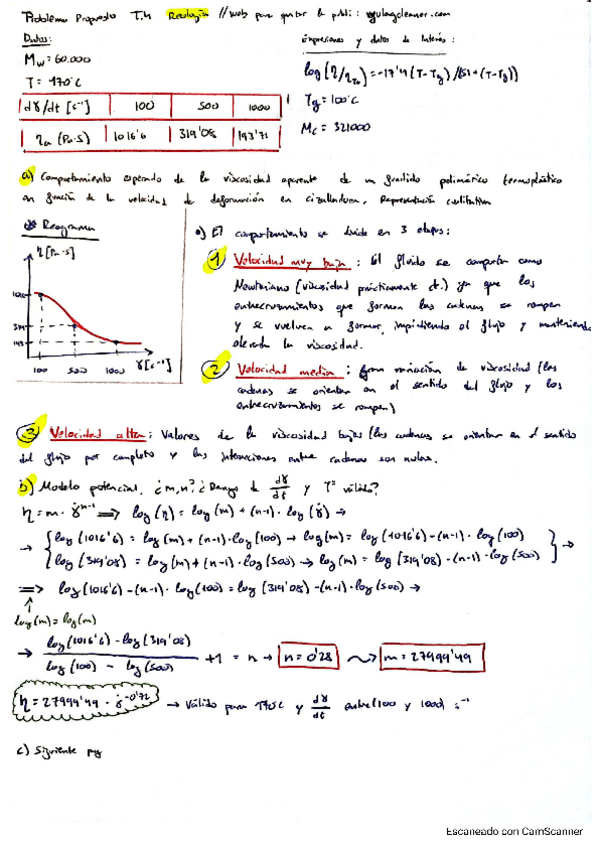 Problema Propuesto T.4 Reología // web para quitar la publi: vgulagcleaner.com
Datos:
Expresiones y datos de interés:
Mw = 60.000
T = 170°C
log(η/ηTg) = -17'4(T-Tg)/(51+(T-Tg))
Tg = 100°C
Mc = 321000
dɣ/dt [s⁻¹] 100 500 1000
ηa (Pa·s) 1016'6 319'08 193'71
a) Comportamiento esperado de la viscosidad aparente de un fundido polimérico termoplástico
en función de la velocidad de deformación en cizalladura. Representación cualitativa
Reograma
η [Pa·s]
100 500 1000 ɣ̇[s⁻¹]
a) El comportamiento se divide en 3 etapas:
1 Velocidad muy baja: El fluido se comporta como
Newtoniano (viscosidad prácticamente ct.) ya que los
entrecruzamientos que forman las cadenas se rompen
y se vuelven a formar, impidiendo el flujo y manteniendo
elevada la viscosidad.
2 Velocidad media: Gran variación de viscosidad (las
cadenas se orientan en el sentido del flujo y los
entrecruzamientos se rompen)
3 Velocidad alta: Valores de la viscosidad bajos (las cadenas se orientan en el sentido
del flujo por completo y las interacciones entre cadenas son nulas.
b) Modelo potencial, ¿m,n? ¿Rango de dɣ/dt y Tª válido?
η = m·ɣ̇ⁿ⁻¹ ⟹ log(η) = log(m)+(n-1)·log(ɣ̇) →
→ { log(1016'6) = log(m)+(n-1)·log(100) → log(m) = log(1016'6)-(n-1)·log(100)
log(319'08) = log(m)+(n-1)·log(500) → log(m) = log(319'08)-(n-1)·log(500) } →
⟹ log(1016'6)-(n-1)·log(100) = log(319'08)-(n-1)·log(500) →
log(m)=log(m)
→ (log(1016'6)-log(319'08))/(log(100)-log(500)) +1 = n → n=0'28 ⤳ m=27999'49
η = 27999'49·ɣ̇⁻⁰'⁷² → Válido para 170°C y dɣ/dt entre (100 y 1000) s⁻¹
c) Siguiente pág
Escaneado con CamScanner